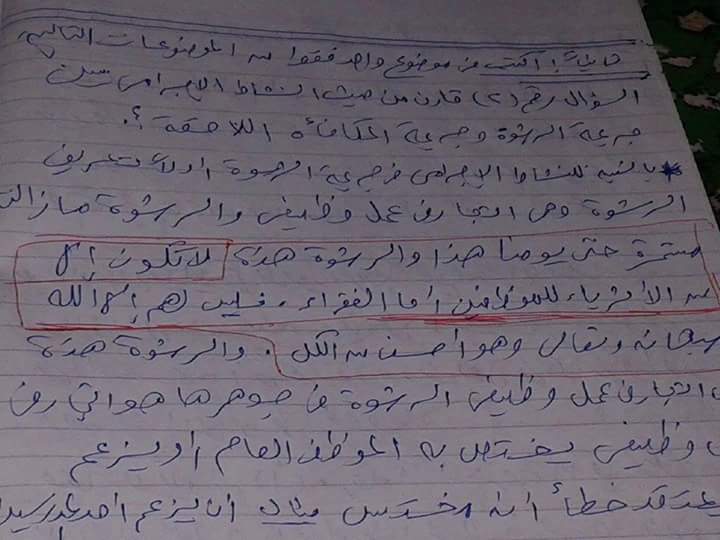 ثانياً: اكتب عن موضوع واحد فقط من الموضوعات التالية
السؤال رقم (٢) قارن من حيث النشاط الإجرامي بين
جريمة الرشوة وجريمة المكافأة اللاحقة؟.
* بالنسبة للنشاط الإجرامي في جريمة الرشوة أولاً تعريف
الرشوة وهي اتجار في عمل وظيفي والرشوة مازالت
مستمرة حتى يومنا هذا والرشوة هذة لا تكون إلا
من الأثرياء للموظفين أما الفقراء، فليس لهم إلا الله
سبحانه وتعالى وهو أحسن من الكل. والرشوة هذة
اتجار في عمل وظيفي الرشوة في جوهرها هو اتجار في
وظيفي يختص به الموظف العام أو يزعم
يعتقد خطأً أنه مختص مثال أن يزعم أحد